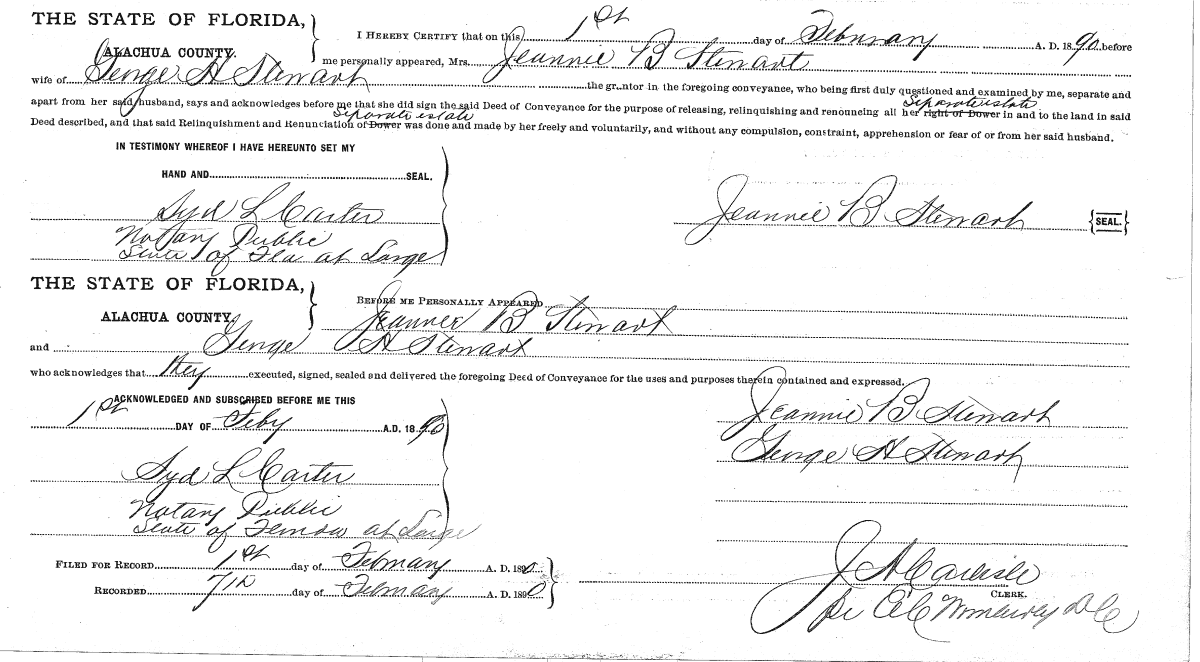 THE STATE OF FLORIDA,
ALACHUA COUNTY.
I HEREBY CERTIFY that on this 1st day of February A. D. 1890 before
me personally appeared, Mrs. Jeannie B Stewart
wife of George H Stewart the gr..ntor in the foregoing conveyance, who being first duly questioned and examined by me, separate and
separate estate
apart from her said husband, says and acknowledges before me that she did sign the said Deed of Conveyance for the purpose of releasing, relinquishing and renouncing all her right of Dower in and to the land in said
separate estate
Deed described, and that said Relinquishment and Renunciation of Dower was done and made by her freely and voluntarily, and without any compulsion, constraint, apprehension or fear of or from her said husband.
IN TESTIMONY WHEREOF I HAVE HEREUNTO SET MY
HAND AND SEAL.
Syd L Carter
Notary Public
State of Fla at Large
Jeannie B Stewart {SEAL.}
THE STATE OF FLORIDA,
ALACHUA COUNTY.
BEFORE ME PERSONALLY APPEARED
Jeannie B Stewart
and George H Stewart
who acknowledges that they executed, signed, sealed and delivered the foregoing Deed of Conveyance for the uses and purposes therein contained and expressed.
ACKNOWLEDGED AND SUBSCRIBED BEFORE ME THIS
1st DAY OF Feby A.D. 1890
Syd L Carter
Notary Public
State of at Large
Jeannie B Stewart
George H Stewart
FILED FOR RECORD 1st day of February A. D. 1890
RECORDED 7th day of February A. D. 1890
J A Carlisle
CLERK.
D C